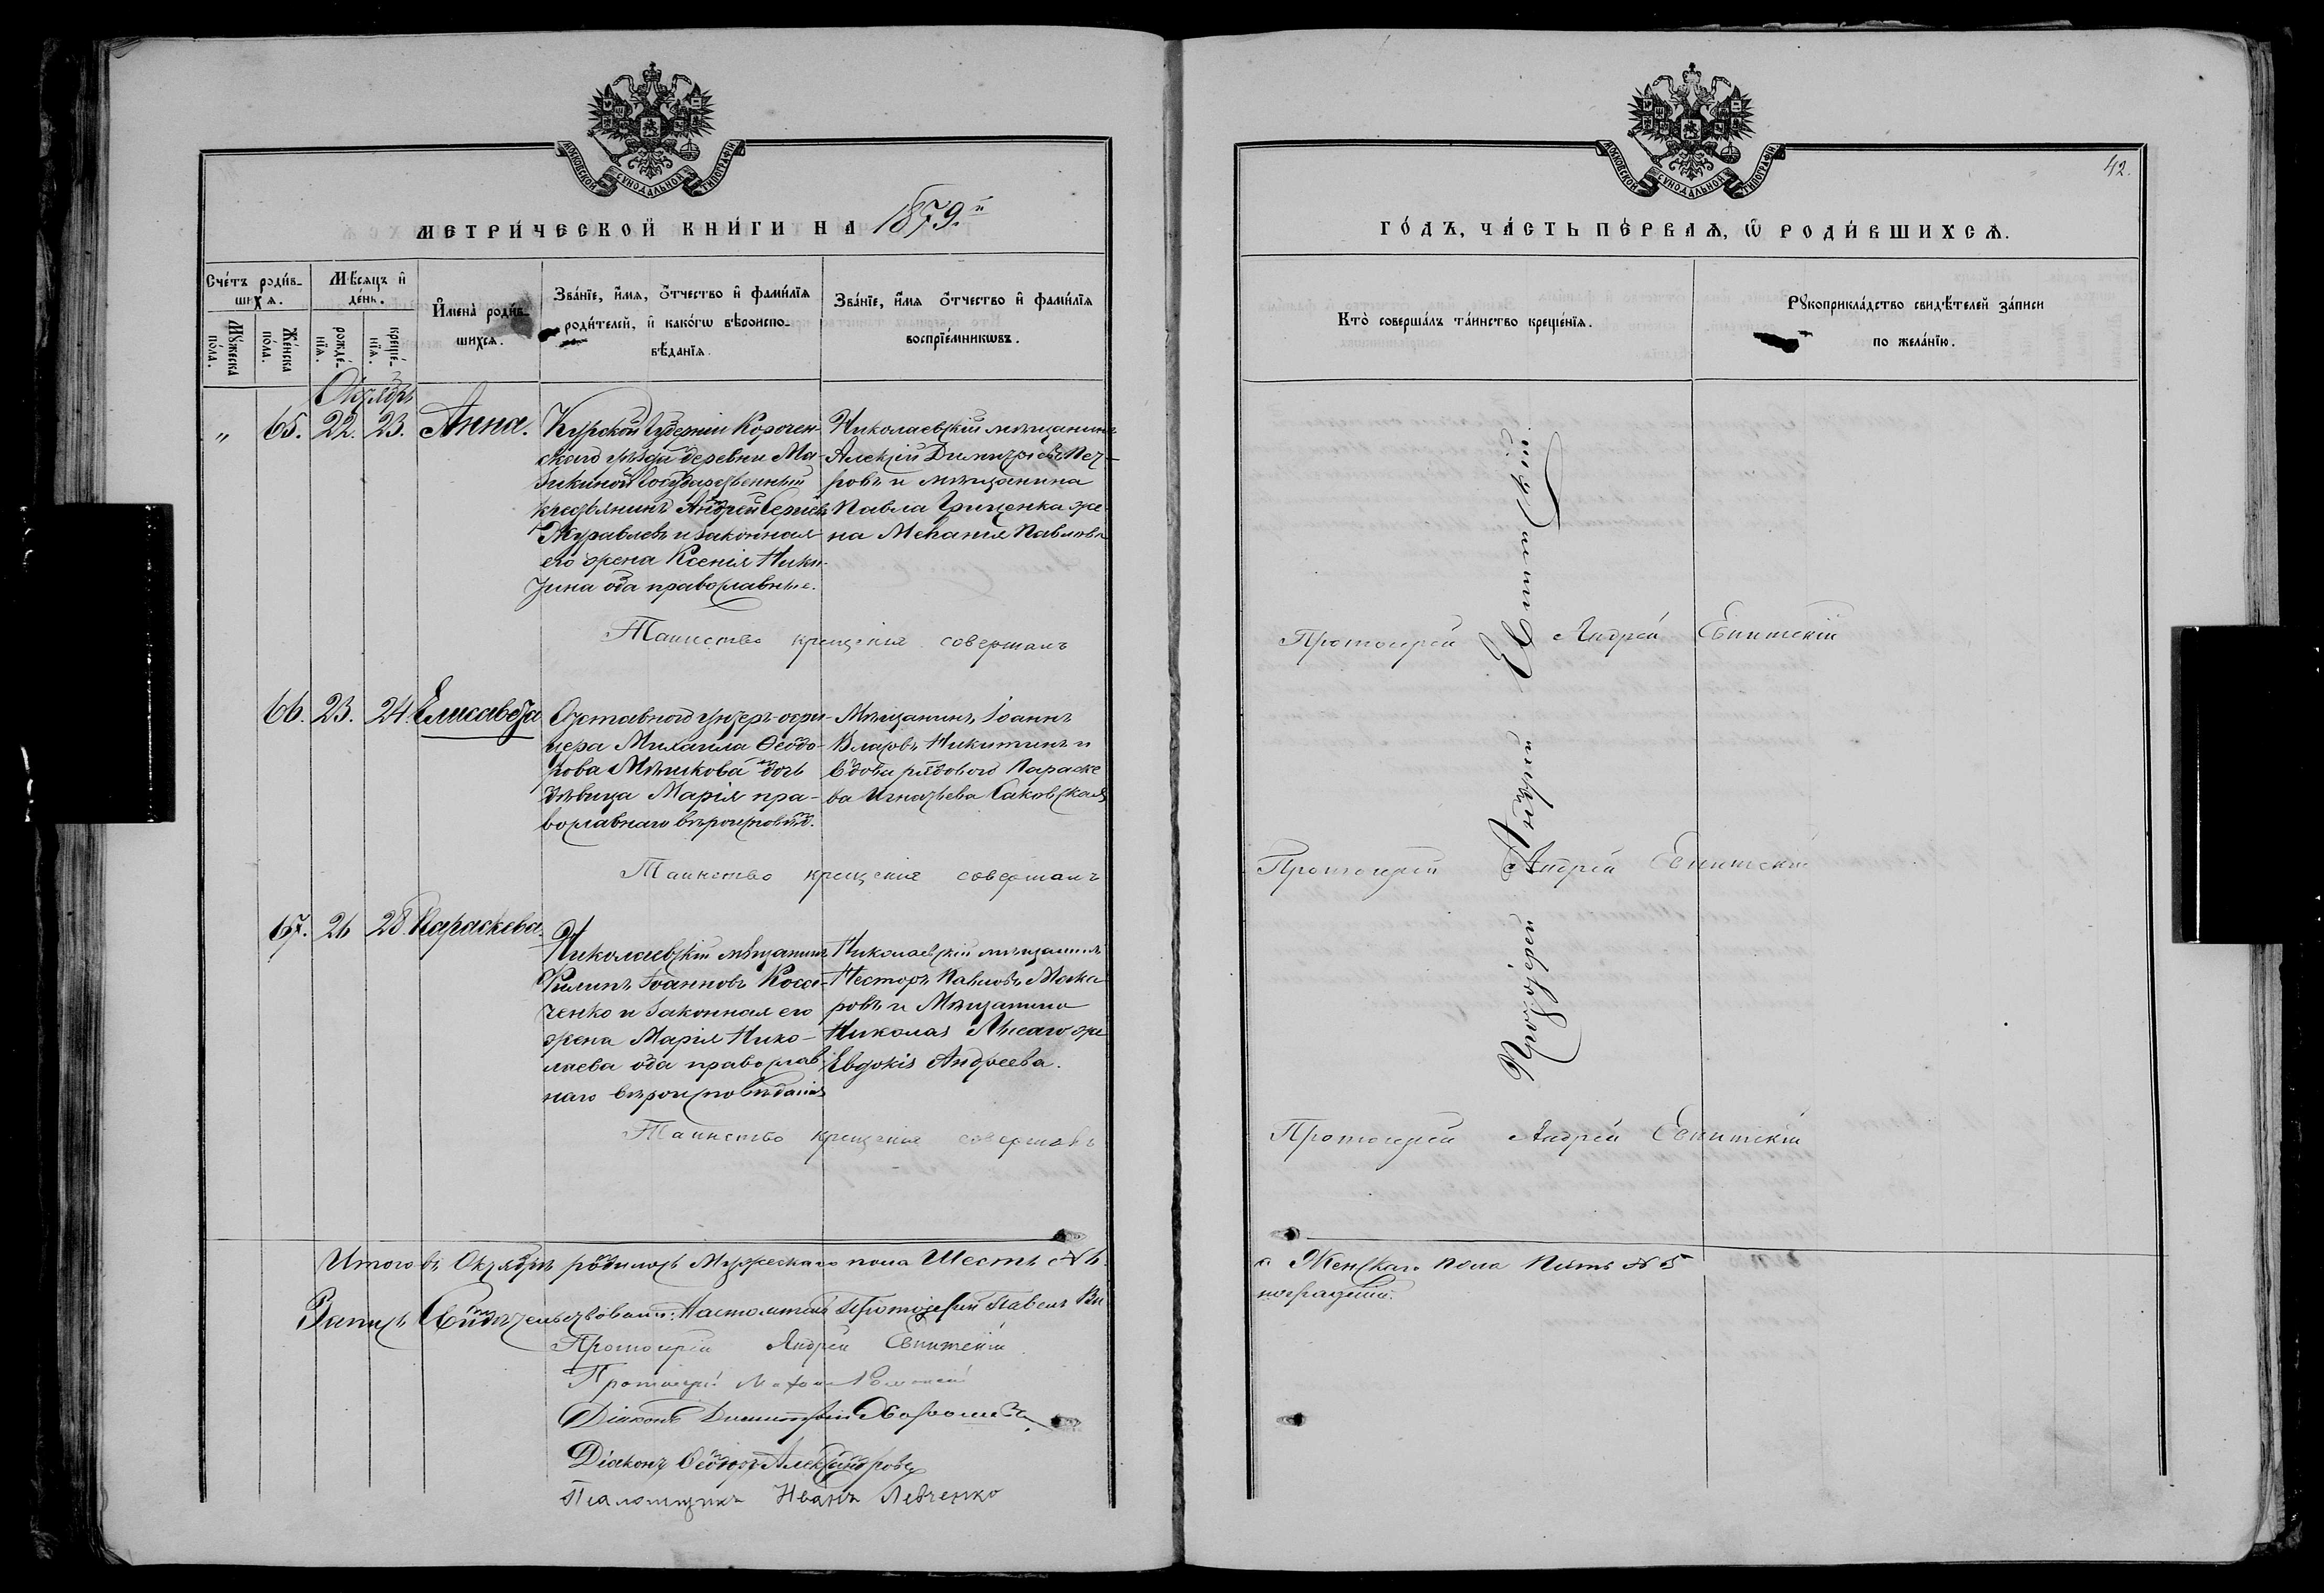 МОСКОВСКОЙ СѴНОДАЛЬНОЙ ТИПОГРАФІИ
МЕТРИ́ЧЕСКОЙ КНИ́ГИ НА 1879.й
Сче́тъ роди́вшихся.
Мѣ́сяцъ и де́нь.
Имена̀ роди́вшихся.
Зва́нїе, и́мя, ѻ҆́тчество и҆ фами́лїя роди́телей, и҆ како́гѡ вѣроиспо-
вѣ́данїя.
Зва́нїе, и́мя ѻ҆́тчество и҆ фами́лїя
воспрїе́мникѡвъ.
Мꙋ́жеска по́ла.
Же́нска по́ла.
рожде́нїя.
креще́нїя.
Октябрь
" 65. 22. 23. Анна.
Курской Губерніи Корочен-
скаго уѣзда деревни Ма-
зикиной Государственный
крестьянинъ Андрей Сергіевъ
Журавлевъ и законная
его жена Ксенія Ники-
тина оба православные.
Николаевскій мѣщанинъ
Алексій Димитріевъ Пет-
ровъ и мѣщанина
Павла Гриценка же-
на Меланія Павлова
Таинство крещенія совершалъ
66. 23. 24. Елисавета
Отставного унтеръ-офи-
цера Михаила Ѳеодо-
рова Мѣшкова дочь
дѣвица Марія пра-
вославнаго вѣроисповѣд.
Мѣщанинъ Іоаннъ
Власовъ Никитинъ и
вдова рядового Параске-
ва Игнатьева Саковская
Таинство крещенія совершалъ
67. 26 28. Параскева.
Николаевскій мѣщанинъ
Филипъ Іоанновъ Косс-
ченко и законная его
жена Марія Нико-
лаева оба православ-
наго вѣроисповѣданія
Николаевскій мѣщанинъ
Несторъ Павловъ Мака-
ровъ и Мѣщанина
Николая Лысаго жена
Евдокія Андреева.
Таинство крещенія совершалъ
Итого въ Октябрѣ родилось Мужескаго пола Шесть №6.
Запись Свидѣтельствовали: Настоятель Протоіерей Павелъ
Протоіерей Андрей Евнитскій
Протоіерей
Діаконъ Димитрій
Діаконъ Ѳеодоръ Александровъ
Псаломщикъ Иванъ Левченко
МОСКОВСКОЙ СѴНОДАЛЬНОЙ ТИПОГРАФІИ
42.
ГО́ДЪ, ЧА́СТЬ ПЕ́РВАЯ, Ѡ҆ РОДИ́ВШИХСЯ.
Кто̀ соверша́лъ та́инство креще́нїя.
Рꙋкоприкла́дство свидѣ́телей за́писи
по жела́нїю.
Протоіерей Андрей Евнитскій
Протоіерей Андрей Евнитскій
Протоіерей Андрей Евнитскій
Протоіерей Андрей Евнитскій
а Женскаго пола Пять №5